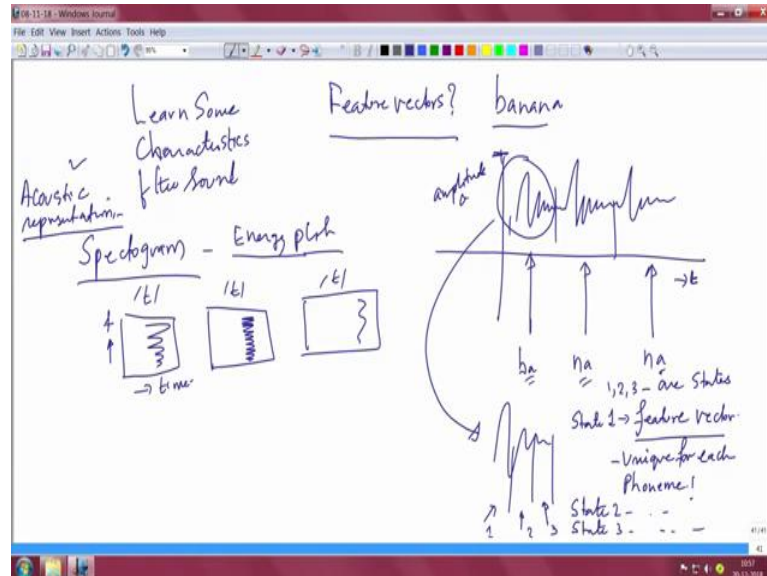 08-11-18 - Windows Journal
File Edit View Insert Actions Tools Help
Learn Some
Characteristics
of the Sound
Feature vectors?
banana
Acoustic
representation
Spectogram - Energy plot
/t/ /t/ /t/
f
→ time
amplitude
a
→t
ba na na
1,2,3 - are States
State 1 → feature vector
- Unique for each
Phoneme!
1 2 3
State 2 - . . -
State 3 - . . . -
41/41
41
10:57
20-11-2018